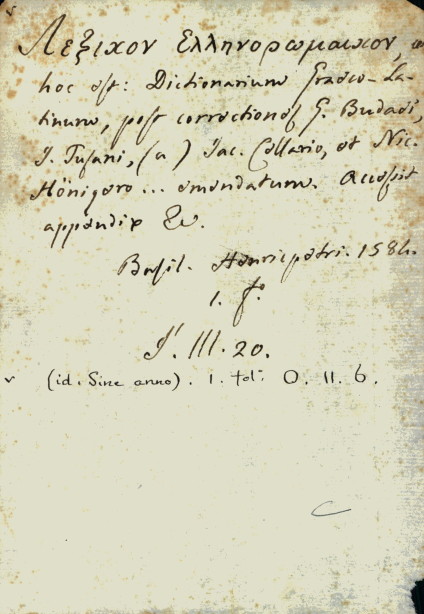 Λεξικον Ελληνορωμαικον,
hoc est: Dictionarium Graeco-La-
tinum, post correctiones G. Budaei,
J. Tusani, (a ) Jac. Cellario, et Nic.
Hönigero ... emendatum. Accessit
appendix &c.
Basil. Henricpetri. 1584.
1. fo.
III. 20.
(id. Sine anno). 1. fol: O. II. 6.